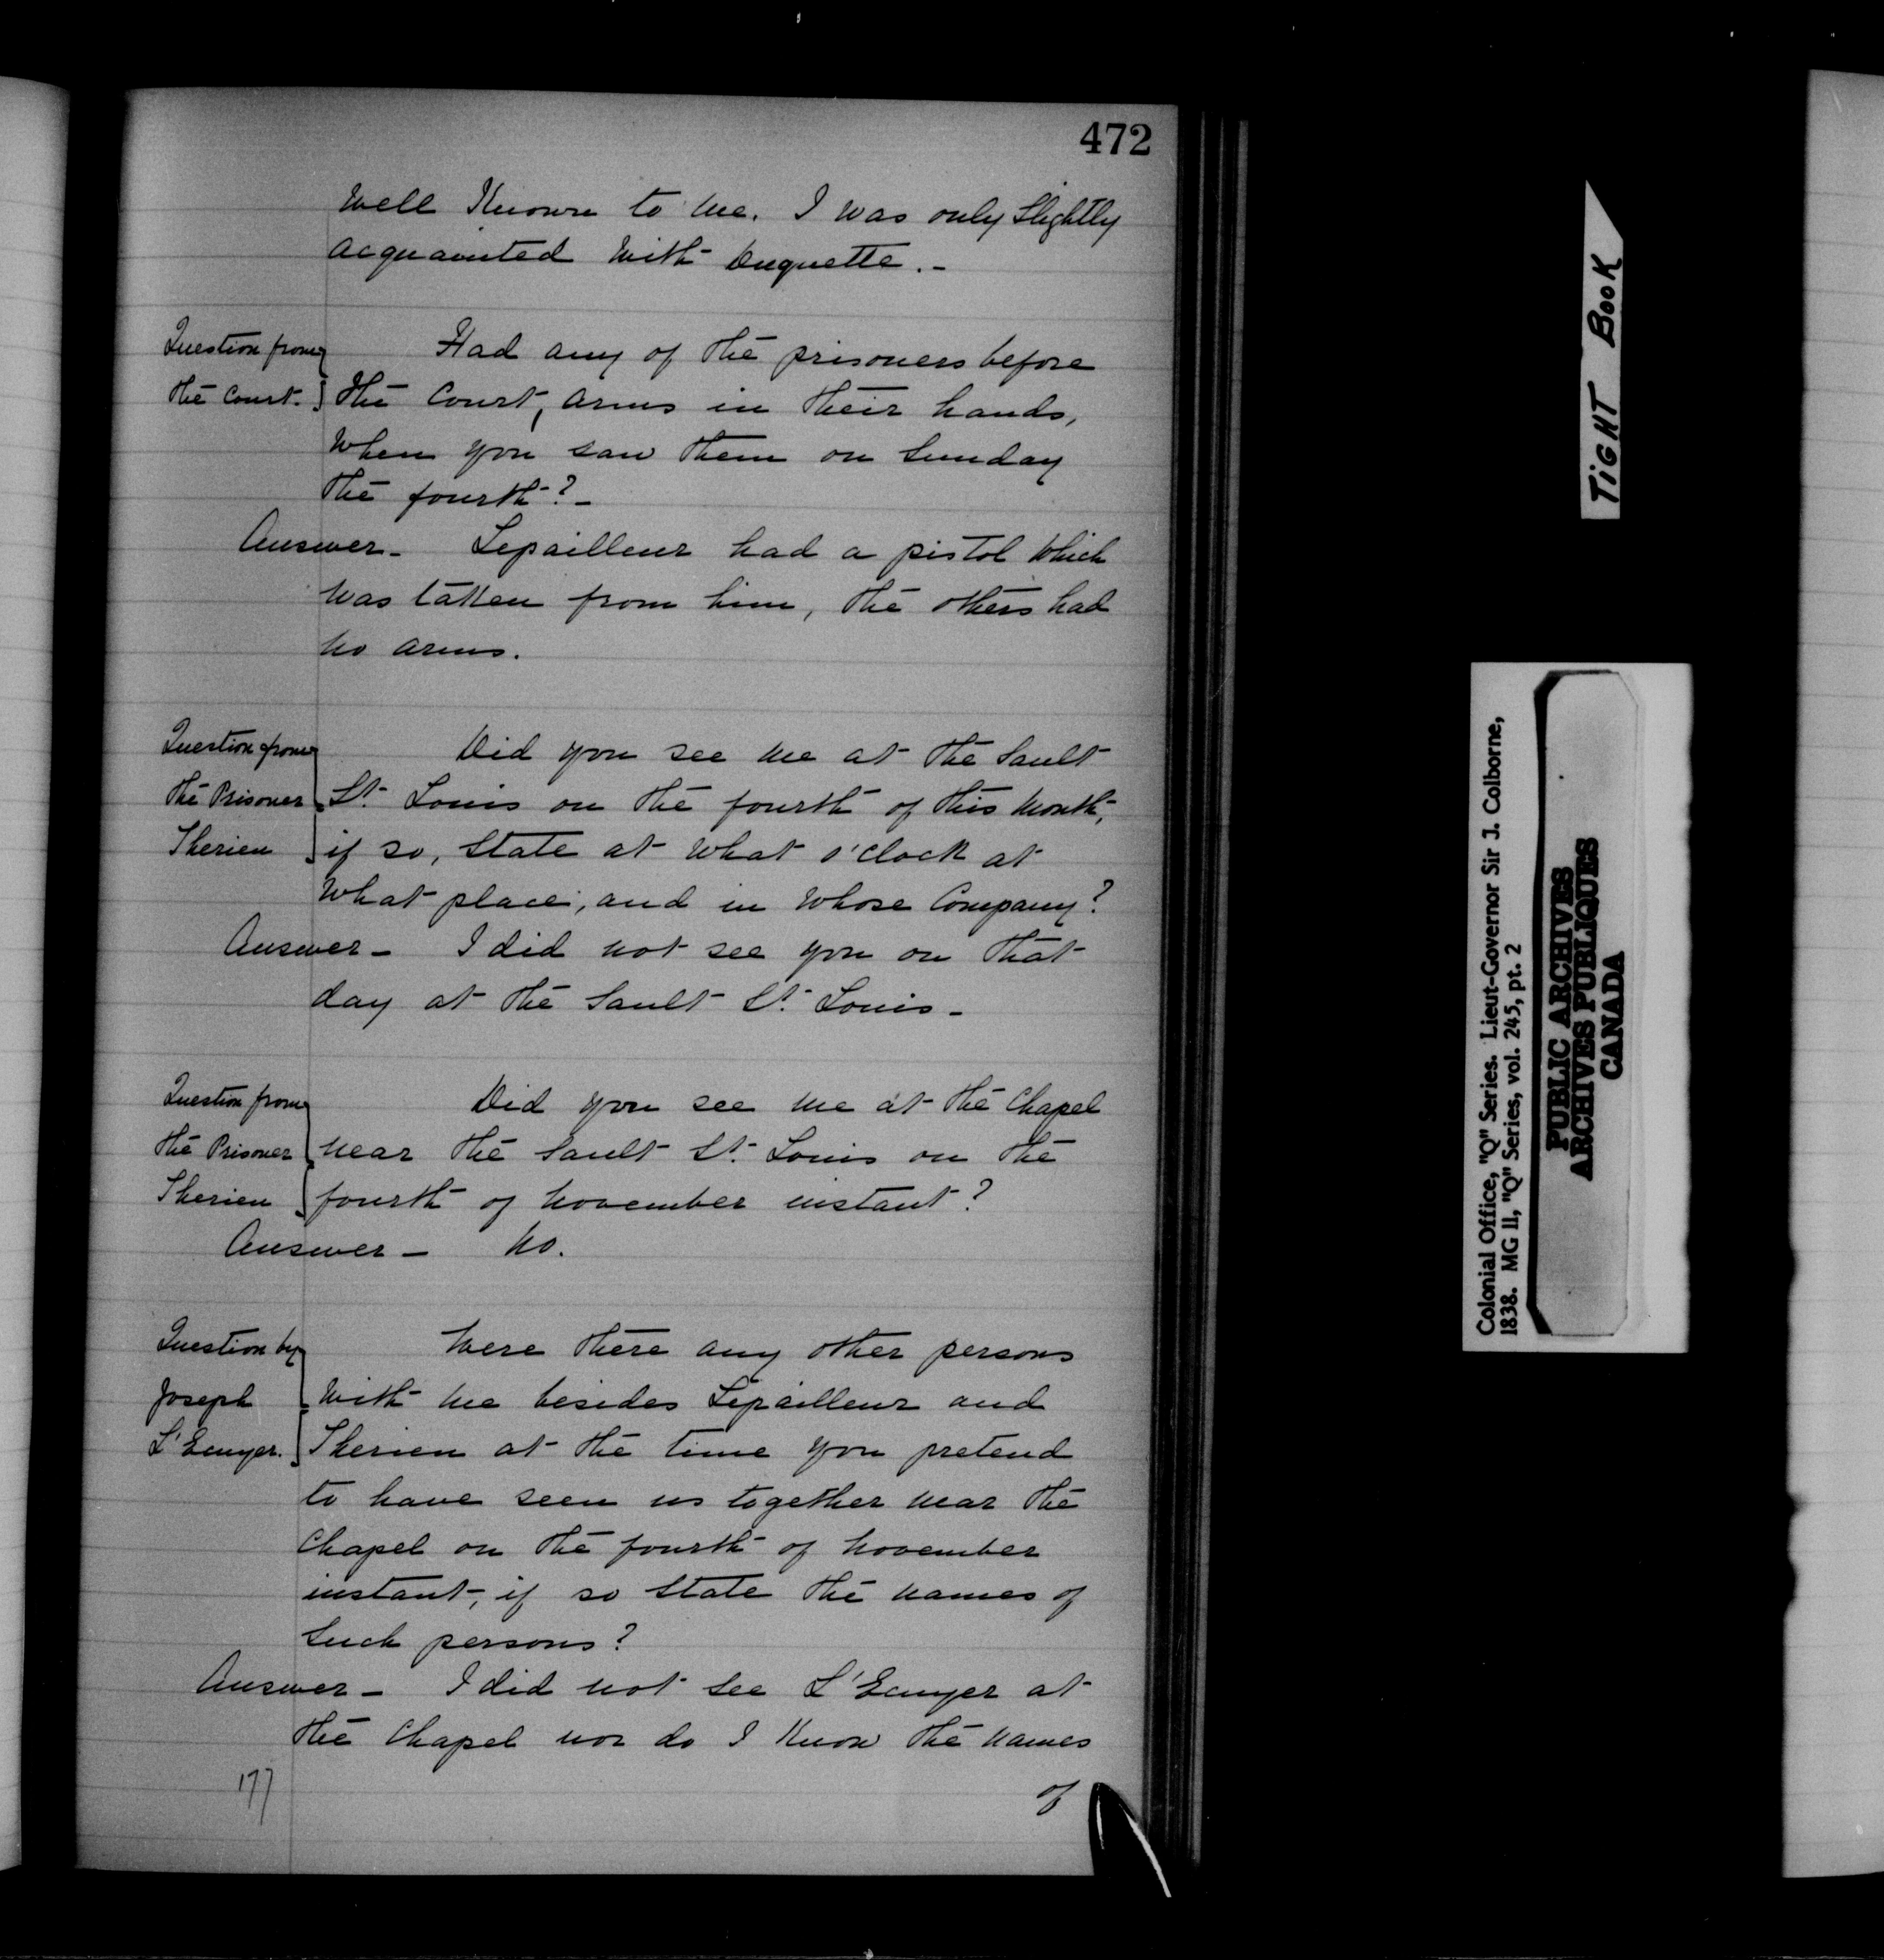 472
Well Known to me. I was only Slightly
acquainted With Duquette.-
Question from
the Court.
Had any of the prisoners before
the Court, arms in their hands,
When you saw them on Sunday
the fourth?-
Answer- Lepailleur had a pistol Which
Was taken from him, the others had
no arms.
Question from
the Prisoner
Therien
Did you see me at the Sault
St. Louis on the fourth of this Month,
if so, State at What o'Clock at
What place, and in Whose Company?
Answer- I did not see you on that
day at the Sault St. Louis-
Question from
the Prisoner
Therien
Did you see me at the Chapel
near the Sault St. Louis on the
fourth of November instant?
Answer- No.
Question by
Joseph
L'Ecuyer.
Were there any other persons
With me besides Lepailleur and
Therien at the time you pretend
to have seen us together near the
Chapel on the fourth of November
instant, if so State the names of
Such persons?
Answer- I did not See L'Ecuyer at
the Chapel nor do I Know the names
177
of
TIGHT BOOK
Colonial Office, "Q" Series. Lieut-Governor Sir J. Colborne,
1838. MG 11, "Q" Series, vol. 245, pt. 2
PUBLIC ARCHIVES
ARCHIVES PUBLIQUES
CANADA